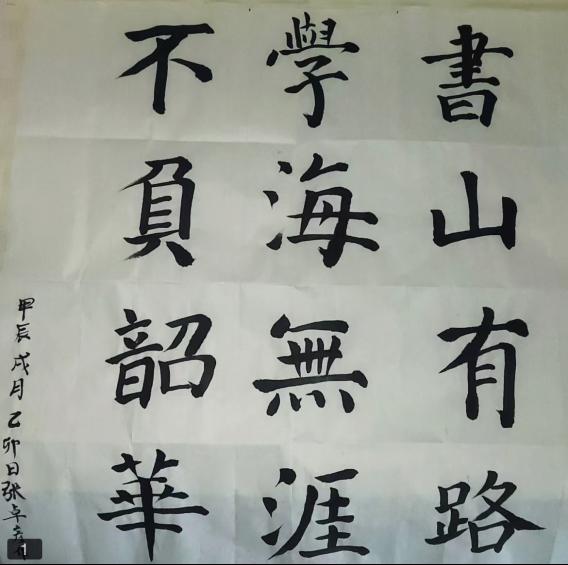 書山有路
學海無涯
不負韶華
甲辰戌月乙卯日張卓